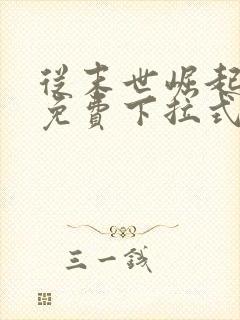 從末世崛起
免費下拉式
三一錢